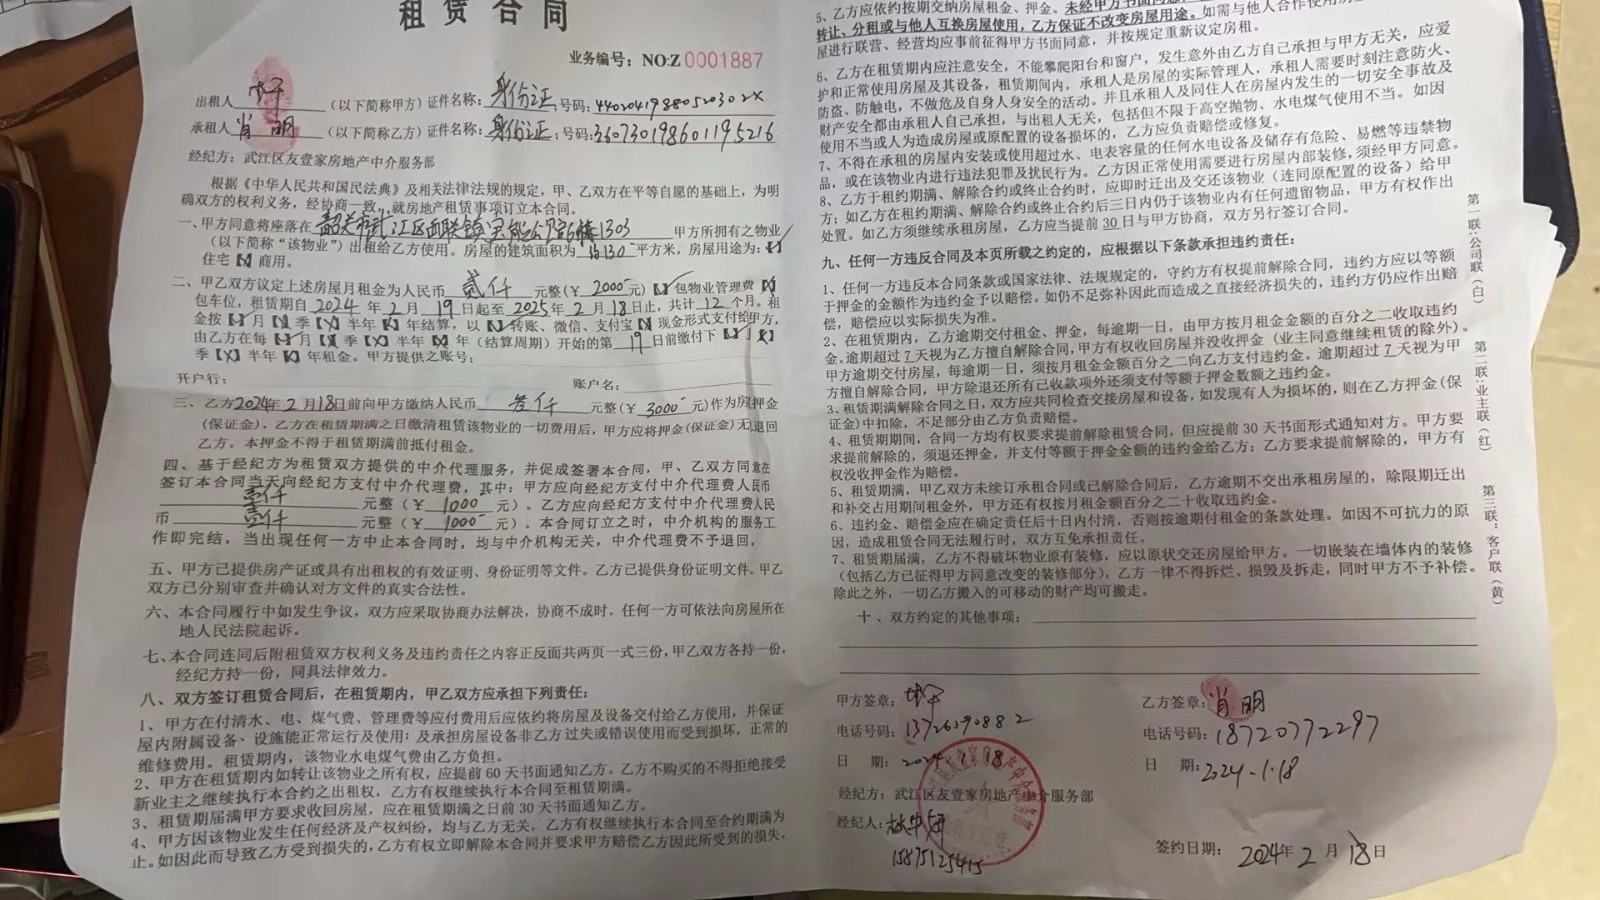 租赁合同
业务编号：NO:Z 0001887
出租人 （以下简称甲方）证件名称：身份证 号码：44020419880520302X
承租人 肖明 （以下简称乙方）证件名称：身份证 号码：360730198601195216
经纪方：武江区友壹家房地产中介服务部
根据《中华人民共和国民法典》及相关法律法规的规定，甲、乙双方在平等自愿的基础上，为明
确双方的权利义务，经协商一致，就房地产租赁事项订立本合同。
一、甲方同意将座落在 韶关市武江区西联镇 6栋1303 甲方所拥有之物业
（以下简称“该物业”）出租给乙方使用。房屋的建筑面积为 约130 平方米，房屋用途为：【】
住宅【】商用。
二、甲乙双方议定上述房屋月租金为人民币 贰仟 元整(￥ 2000 元)【】包物业管理费【】
包车位，租赁期自 2024 年 2 月 19 日起至 2025 年 2 月 18 日止，共计 12 个月。租
金按【】月【】季【】半年【】年结算，以【】转账、微信、支付宝【】现金形式支付给甲方，
由乙方在每【】月【】季【】半年【】年（结算周期）开始的第 19 日前缴付下【】月【】
季【】半年【】年租金。甲方提供之账号：
开户行： 账户名：
三、乙方2024年2月18日前向甲方缴纳人民币 叁仟 元整(￥ 3000 元)作为房押金
(保证金)。乙方在租赁期满之日缴清租赁该物业的一切费用后，甲方应将押金(保证金)无息退回
乙方。本押金不得于租赁期满前抵付租金。
四、基于经纪方为租赁双方提供的中介代理服务，并促成签署本合同，甲、乙双方同意在
签订本合同当天向经纪方支付中介代理费，其中：甲方应向经纪方支付中介代理费人民币
壹仟 元整（￥ 1000 元）。乙方应向经纪方支付中介代理费人民
币 壹仟 元整（￥ 1000 元）。本合同订立之时，中介机构的服务工
作即完结，当出现任何一方中止本合同时，均与中介机构无关，中介代理费不予退回，
五、甲方已提供房产证或具有出租权的有效证明、身份证明等文件。乙方已提供身份证明文件。甲乙
双方已分别审查并确认对方文件的真实合法性。
六、本合同履行中如发生争议，双方应采取协商办法解决，协商不成时，任何一方可依法向房屋所在
地人民法院起诉。
七、本合同连同后附租赁双方权利义务及违约责任之内容正反面共两页一式三份，甲乙双方各持一份，
经纪方持一份，同具法律效力。
八、双方签订租赁合同后，在租赁期内，甲乙双方应承担下列责任：
1、甲方在付清水、电、煤气费、管理费等应付费用后应依约将房屋及设备交付给乙方使用，并保证
屋内附属设备、设施能正常运行及使用；及承担房屋设备非乙方过失或错误使用而受到损坏，正常的
维修费用。租赁期内，该物业水电煤气费由乙方负担。
2、甲方在租赁期内如转让该物业之所有权，应提前60天书面通知乙方。乙方不购买的不得拒绝接受
新业主之继续执行本合约之出租权，乙方有权继续执行本合同至租赁期满。
3、租赁期届满甲方要求收回房屋，应在租赁期满之日前30天书面通知乙方。
4、甲方因该物业发生任何经济及产权纠纷，均与乙方无关，乙方有权继续执行本合同至合约期满为
止。如因此而导致乙方受到损失的，乙方有权立即解除本合同并要求甲方赔偿乙方因此所受到的损失。
5、乙方应依约按期交纳房屋租金、押金。未经甲方书面同意，
转让、分租或与他人互换房屋使用，乙方保证不改变房屋用途。如需与他人合作使用房
屋进行联营、经营均应事前征得甲方书面同意，并按规定重新议定房租。
6、乙方在租赁期内应注意安全，不能攀爬阳台和窗户，发生意外由乙方自己承担与甲方无关，应爱
护和正常使用房屋及其设备，租赁期间内，承租人是房屋的实际管理人，承租人需要时刻注意防火、
防盗、防触电，不做危及自身人身安全的活动。并且承租人及同住人在房屋内发生的一切安全事故及
财产安全都由承租人自己承担，与出租人无关，包括但不限于高空抛物、水电煤气使用不当。如因
使用不当或人为造成房屋或原配置的设备损坏的，乙方应负责赔偿或修复。
7、不得在承租的房屋内安装或使用超过水、电表容量的任何水电设备及储存有危险、易燃等违禁物
品，或在该物业内进行违法犯罪及扰民行为。乙方因正常使用需要进行房屋内部装修，须经甲方同意。
8、乙方于租约期满、解除合约或终止合约时，应即时迁出及交还该物业（连同原配置的设备）给甲
方；如乙方在租约期满、解除合约或终止合约后三日内仍于该物业内有任何遗留物品，甲方有权作出
处置。如乙方须继续承租房屋，乙方应当提前30日与甲方协商，双方另行签订合同。
九、任何一方违反合同及本页所载之约定的，应根据以下条款承担违约责任：
1、任何一方违反本合同条款或国家法律、法规规定的，守约方有权提前解除合同，违约方应以等额
于押金的金额作为违约金予以赔偿。如仍不足弥补因此而造成之直接经济损失的，违约方仍应作出赔
偿，赔偿应以实际损失为准。
2、在租赁期内，乙方逾期交付租金、押金，每逾期一日，由甲方按月租金金额的百分之二收取违约
金。逾期超过7天视为乙方擅自解除合同，甲方有权收回房屋并没收押金（业主同意继续租赁的除外）。
甲方逾期交付房屋，每逾期一日，须按月租金金额百分之二向乙方支付违约金。逾期超过7天视为甲
方擅自解除合同，甲方除退还所有已收款项外还须支付等额于押金数额之违约金。
3、租赁期满解除合同之日，双方应共同检查交接房屋和设备，如发现有人为损坏的，则在乙方押金(保
证金)中扣除，不足部分由乙方负责赔偿。
4、租赁期期间，合同一方均有权要求提前解除租赁合同，但应提前30天书面形式通知对方。甲方要
求提前解除的，须退还押金，并支付等额于押金金额的违约金给乙方；乙方要求提前解除的，甲方有
权没收押金作为赔偿。
5、租赁期满，甲乙双方未续订承租合同或已解除合同后，乙方逾期不交出承租房屋的，除限期迁出
和补交占用期间租金外，甲方还有权按月租金额百分之二十收取违约金。
6、违约金、赔偿金应在确定责任后十日内付清，否则按逾期付租金的条款处理。如因不可抗力的原
因，造成租赁合同无法履行时，双方互免承担责任。
7、租赁期届满，乙方不得破坏物业原有装修，应以原状交还房屋给甲方。一切嵌装在墙体内的装修
（包括乙方已征得甲方同意改变的装修部分），乙方一律不得拆烂、损毁及拆走，同时甲方不予补偿。
除此之外，一切乙方搬入的可移动的财产均可搬走。
十、双方约定的其他事项：
甲方签章：
电话号码：13726090882
日 期：2024.1.18
经纪方：武江区友壹家房地产中介服务部
经纪人：
15875125415
乙方签章：肖明
电话号码：18720772297
日 期：2024.1.18
签约日期：2024年2月18日
第一联：公司联（白）
第二联：业主联（红）
第三联：客户联（黄）